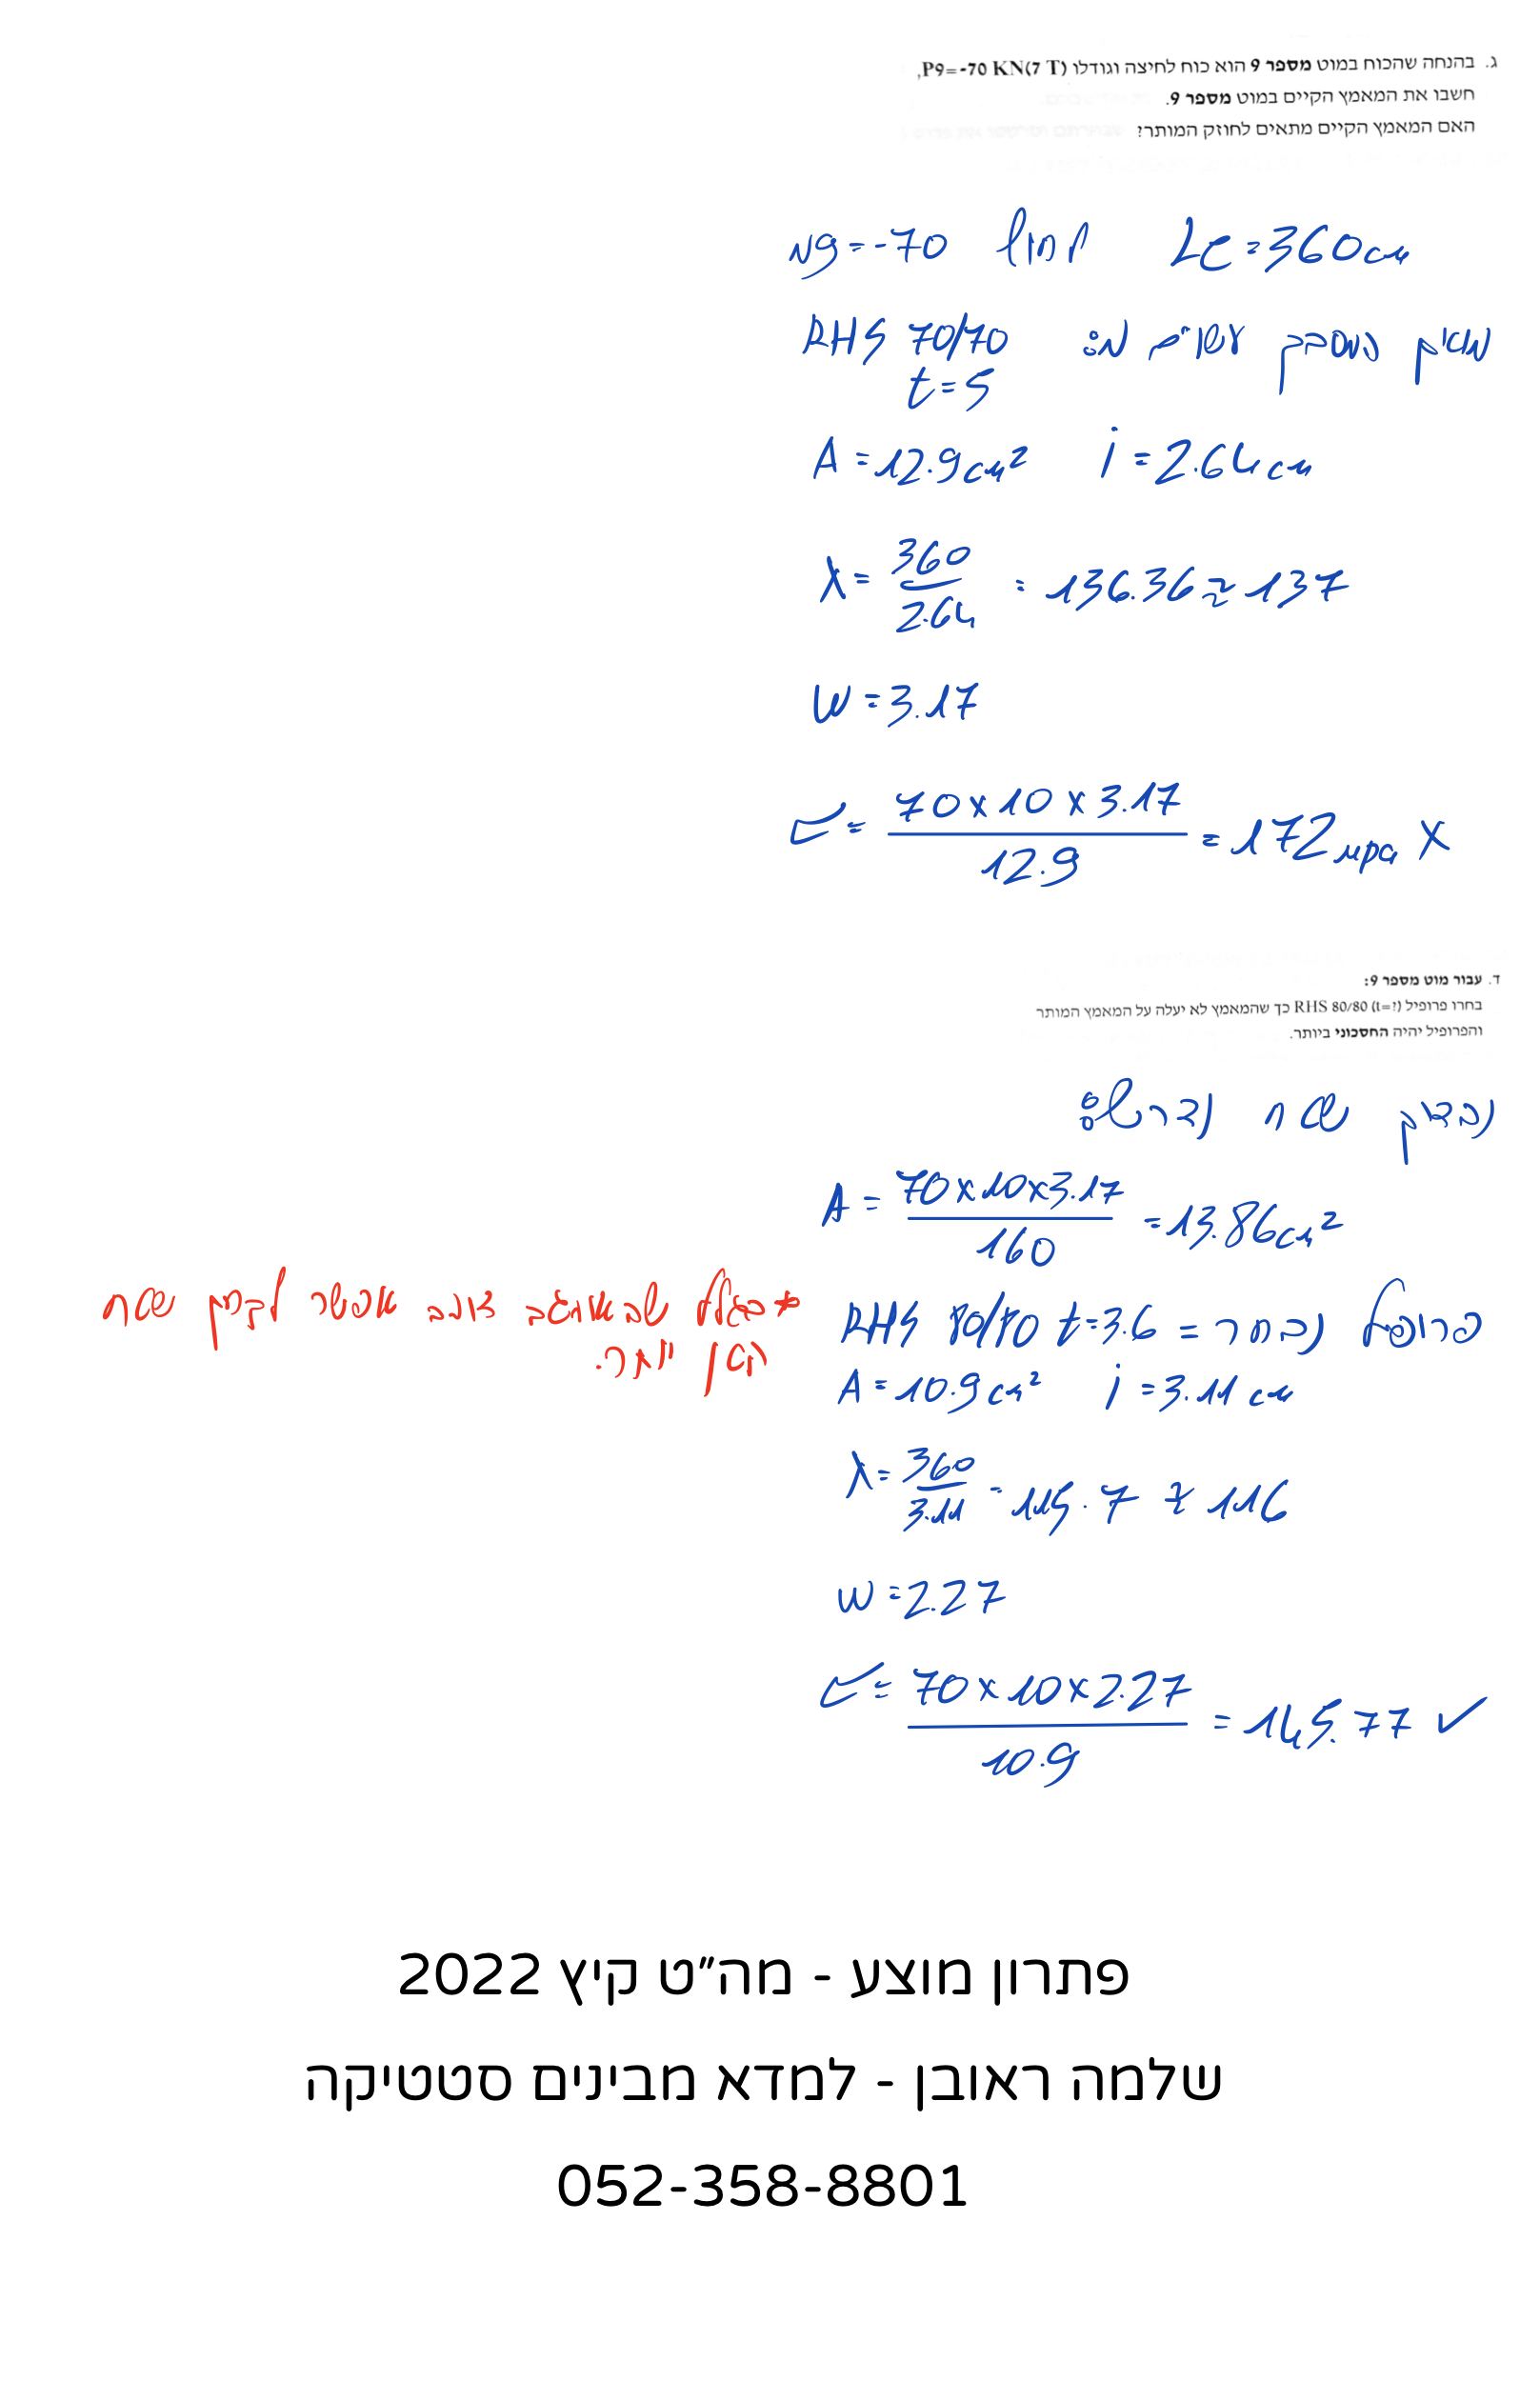 ג. בהנחה שהכוח במוט מספר 9 הוא כוח לחיצה וגודלו P9=-70 KN(7 T),
חשבו את המאמץ הקיים במוט מספר 9.
האם המאמץ הקיים מתאים לחוזק המותר?
N9=-70 לחוץ Le=360cm
RHS 70/70
t=5
A=12.9cm² i=2.64cm
λ=360/2.64=136.36≈137
W=3.17
σ=70x10x3.17/12.9=172mpa X
ד. עבור מוט מספר 9:
בחרו פרופיל RHS 80/80 (t=?) כך שהמאמץ לא יעלה על המאמץ המותר
והפרופיל יהיה החסכוני ביותר.
נבדוק שטח נדרש:
A=70x10x3.17/160=13.86cm²
פרופיל נבחר = RHS 80/80 t=3.6
*בגלל שב אפשר לבחון שטח
קטן יותר.
A=10.9cm² i=3.11cm
λ=360/3.11=115.7≈116
W=2.27
σ=70x10x2.27/10.9=145.77 ✓
פתרון מוצע - מה"ט קיץ 2022
שלמה ראובן - למדא מבינים סטטיקה
052-358-8801